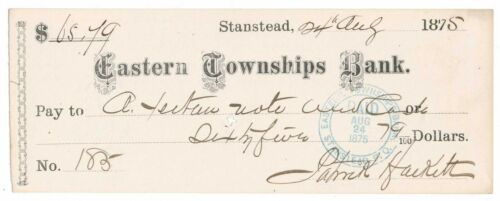 $ 65.79 Stanstead, 24th Aug 1875
Eastern Townships Bank.
Pay to A. note and or
Sixty five 79/100 Dollars.
PAID
AUG
24
1875
No. 185 Patrick Hackett